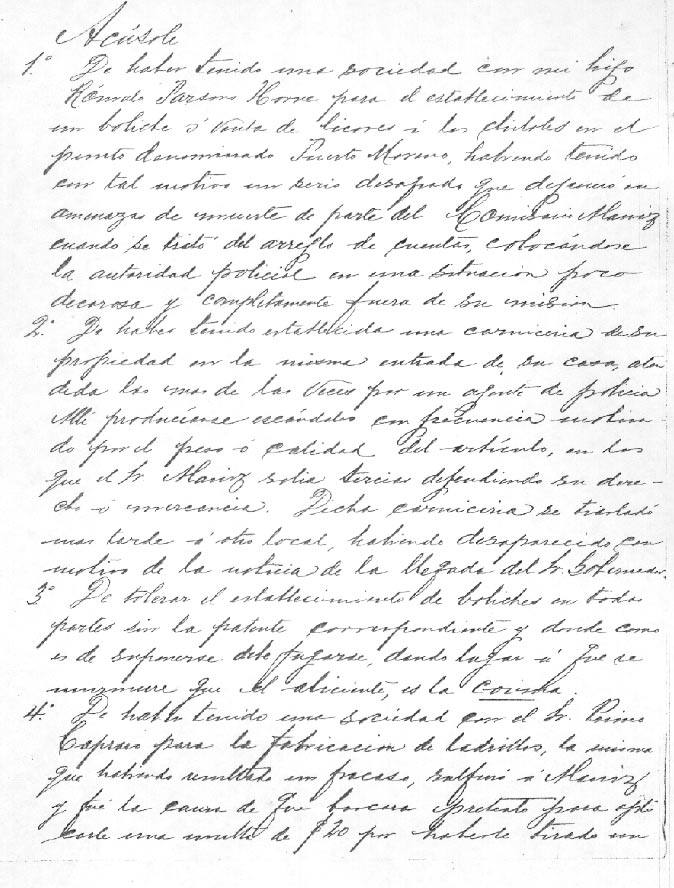 Acúsole
1.° De haber tenido una sociedad con mi hijo
Rómulo Parsons Horne para el establecimiento de
un boliche ó venta de licores á los chilotes en el
punto denominado Puerto Moreno, habiendo tenido
con tal motivo un serio desagrado que degeneró en
amenazas de muerte de parte del Comisario
cuando se trató del arreglo de cuentas, colocándose
la autoridad policial en una situación poco
decorosa y completamente fuera de su mision.
2.° De haber tenido establecida una carniceria de su
propiedad en la misma entrada de su casa, aten
dida las mas de las veces por un agente de policia
Alli producíanse escándalos con frecuencia motiva-
do por el peso ó calidad del artículo, en los
que el Sr. solia terciar defendiendo su dere-
cho ó mercancia. Dicha carniceria se trasladó
mas tarde á otro local, habiendo desaparecido con
motivo de la noticia de la llegada del Sr. Gobernador.
3.° De tolerar el establecimiento de boliches en todas
partes sin la patente correspondiente y donde como
es de suponerse debe jugarse, dando lugar á que se
murmure que el aliciente, es la coima.
4.° De haber tenido una sociedad con el Sr. Primo
Capraro para la fabricacion de ladrillos, la misma
que habiendo resultado un fracaso, á
y fué la causa de que buscara pretexto para apli
carle una multa de $20 por haberle tirado un